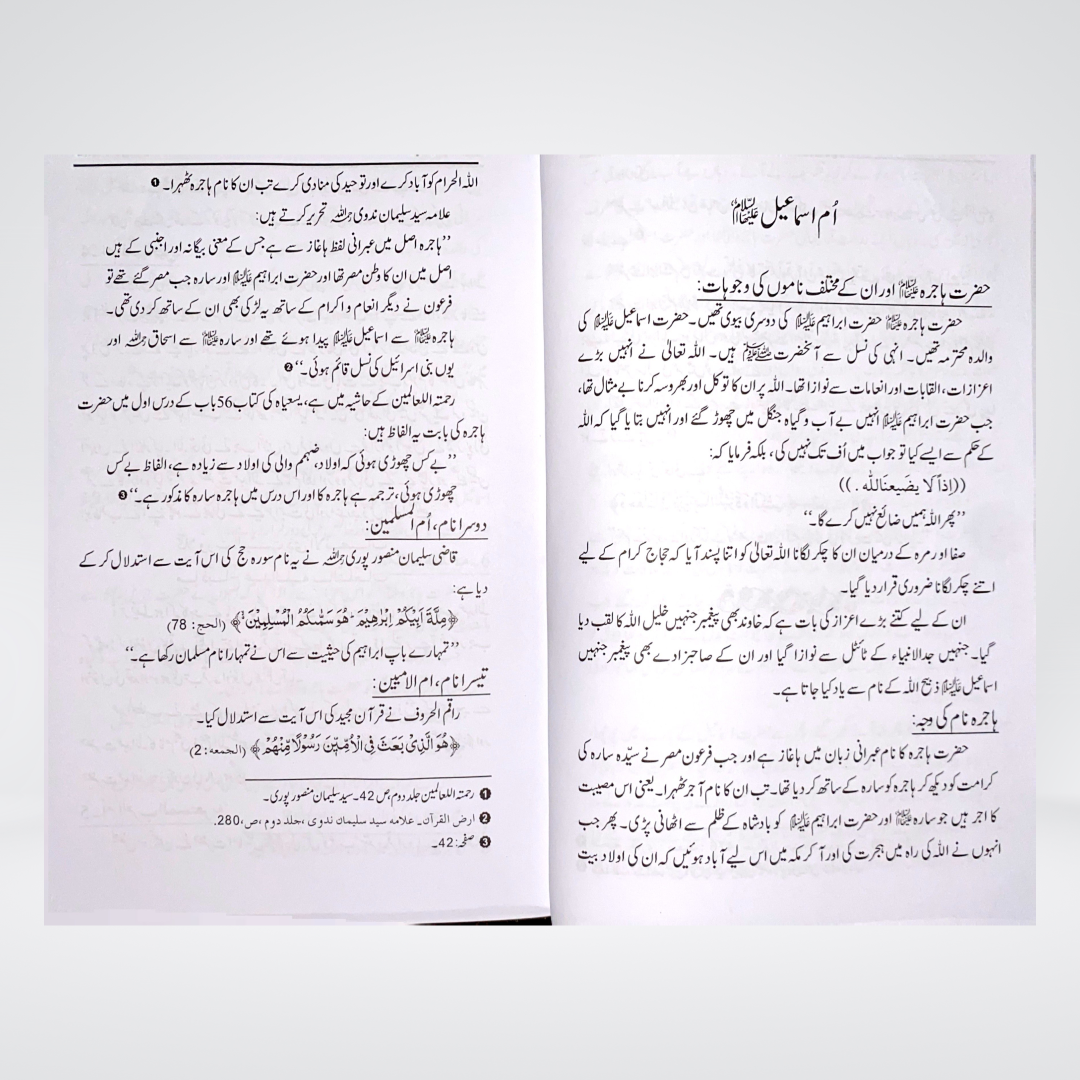 اُم اسماعیل علیہا السلام
حضرت ہاجرہ علیہا السلام اور ان کے مختلف ناموں کی وجوہات:
حضرت ہاجرہ علیہا السلام حضرت ابراہیم علیہ السلام کی دوسری بیوی تھیں۔ حضرت اسماعیل علیہ السلام کی
والدہ محترمہ تھیں۔ انہی کی نسل سے آنحضرت ﷺ ہیں۔ اللہ تعالیٰ نے انہیں بڑے
اعزازات، القابات اور انعامات سے نوازا تھا۔ اللہ پر ان کا توکل اور بھروسہ کرنا بے مثال تھا،
جب حضرت ابراہیم علیہ السلام انہیں بے آب و گیاہ جنگل میں چھوڑ گئے اور انہیں بتایا گیا کہ اللہ
کے حکم سے ایسے کیا تو جواب میں اُف تک نہیں کی، بلکہ فرمایا کہ:
((اِذاً لَا یضَیعنَاللّٰه .))
’’پھر اللہ ہمیں ضائع نہیں کرے گا۔‘‘
صفا اور مرہ کے درمیان ان کا چکر لگانا اللہ تعالیٰ کو اتنا پسند آیا کہ حجاج کرام کے لیے
اتنے چکر لگانا ضروری قرار دیا گیا۔
ان کے لیے کتنے بڑے اعزاز کی بات ہے کہ خاوند بھی پیغمبر جنہیں خلیل اللہ کا لقب دیا
گیا۔ جنہیں جد الانبیاء کے ٹائٹل سے نوازا گیا اور ان کے صاحبزادے بھی پیغمبر جنہیں
اسماعیل علیہ السلام ذبیح اللہ کے نام سے یاد کیا جاتا ہے۔
ہاجرہ نام کی وجہ:
حضرت ہاجرہ کا نام عبرانی زبان میں ہاغاز ہے اور جب فرعون مصر نے سیّدہ سارہ کی
کرامت کو دیکھ کر ہاجرہ کو سارہ کے ساتھ کر دیا تھا۔ تب ان کا نام آجر ٹھہرا۔ یعنی اس مصیبت
کا اجر ہیں جو سارہ علیہا السلام اور حضرت ابراہیم علیہ السلام کو بادشاہ کے ظلم سے اٹھانی پڑی۔ پھر جب
انہوں نے اللہ کی راہ میں ہجرت کی اور آ کر مکہ میں اس لیے آباد ہوئیں کہ ان کی اولاد بیت
اللہ الحرام کو آباد کرے اور توحید کی منادی کرے تب ان کا نام ہاجرہ ٹھہرا۔ ❶
علامہ سید سلیمان ندوی رحمہ اللہ تحریر کرتے ہیں:
’’ہاجرہ اصل میں عبرانی لفظ ہاغاز سے ہے جس کے معنی بیگانہ اور اجنبی کے ہیں
اصل میں ان کا وطن مصر تھا اور حضرت ابراہیم علیہ السلام اور سارہ جب مصر گئے تھے تو
فرعون نے دیگر انعام و اکرام کے ساتھ یہ لڑکی بھی ان کے ساتھ کر دی تھی۔
ہاجرہ علیہا السلام سے اسماعیل علیہ السلام پیدا ہوئے تھے اور سارہ علیہا السلام سے اسحاق رحمہ اللہ اور
یوں بنی اسرائیل کی نسل قائم ہوئی۔‘‘ ❷
رحمتہ اللعالمین کے حاشیہ میں ہے، یسعیاہ کی کتاب 56 باب کے درس اول میں حضرت
ہاجرہ کی بابت یہ الفاظ ہیں:
’’بے کس چھوڑی ہوئی کہ اولاد، ضہم والی کی اولاد سے زیادہ ہے، الفاظ بے کس
چھوڑی ہوئی، ترجمہ ہے ہاجرہ کا اور اس درس میں ہاجرہ سارہ کا مذکور ہے۔‘‘ ❸
دوسرا نام، اُم المسلمین:
قاضی سلیمان منصور پوری رحمہ اللہ نے یہ نام سورہ حج کی اس آیت سے استدلال کر کے
دیا ہے:
﴿مِلَّةَ اَبِيْكُمْ اِبْرٰهِيْمَ ؕ هُوَ سَمّٰىكُمُ الْمُسْلِمِيْنَ ۬ۙ﴾ (الحج: 78)
’’تمہارے باپ ابراہیم کی حیثیت سے اس نے تمہارا نام مسلمان رکھا ہے۔‘‘
تیسرا نام، ام الامبین:
راقم الحروف نے قرآن مجید کی اس آیت سے استدلال کیا۔
﴿هُوَ الَّذِيْ بَعَثَ فِي الْاُمِّيّٖنَ رَسُوْلًا مِّنْهُمْ﴾ (الجمعه: 2)
❶ رحمتہ اللعالمین جلد دوم، ص 42۔ سید سلیمان منصور پوری۔
❷ ارض القرآن۔ علامه سید سلیمان ندوی، جلد دوم، ص، 280.
❸ صفحہ: 42۔